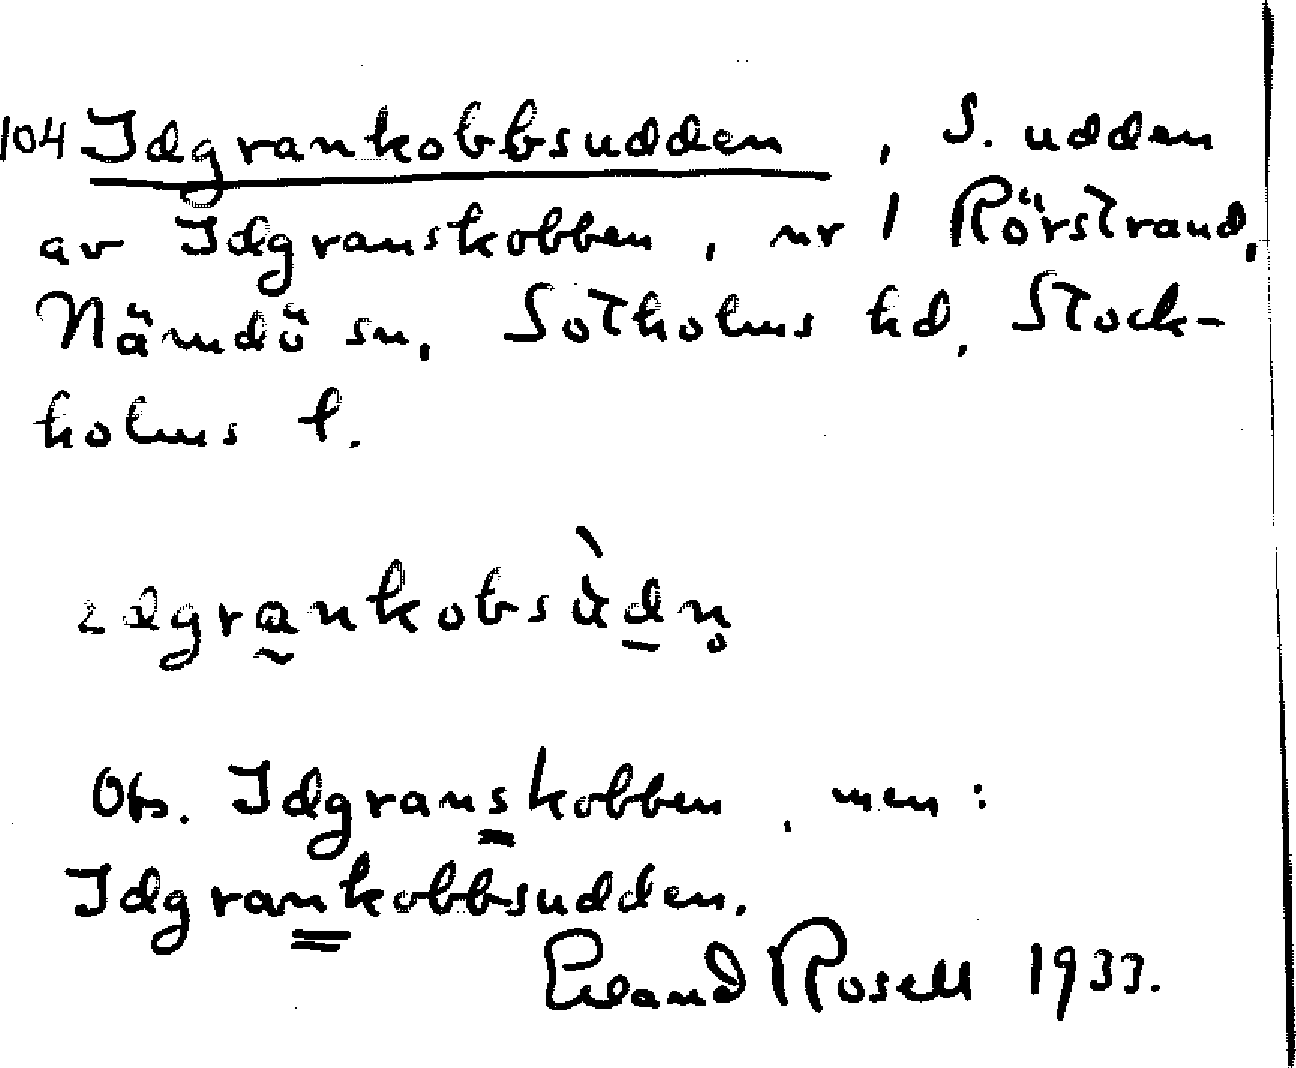 104 Idgrankobbsudden, S. udden
av Idgranskobben, nr 1 Rörstrand,
Nämdö sn, Sotholms hd, Stock-
holms l.
idgrankobsùdn̥
Obs. Idgranskobben, men:
Idgrankobbsudden.
Erland Rosell 1933.